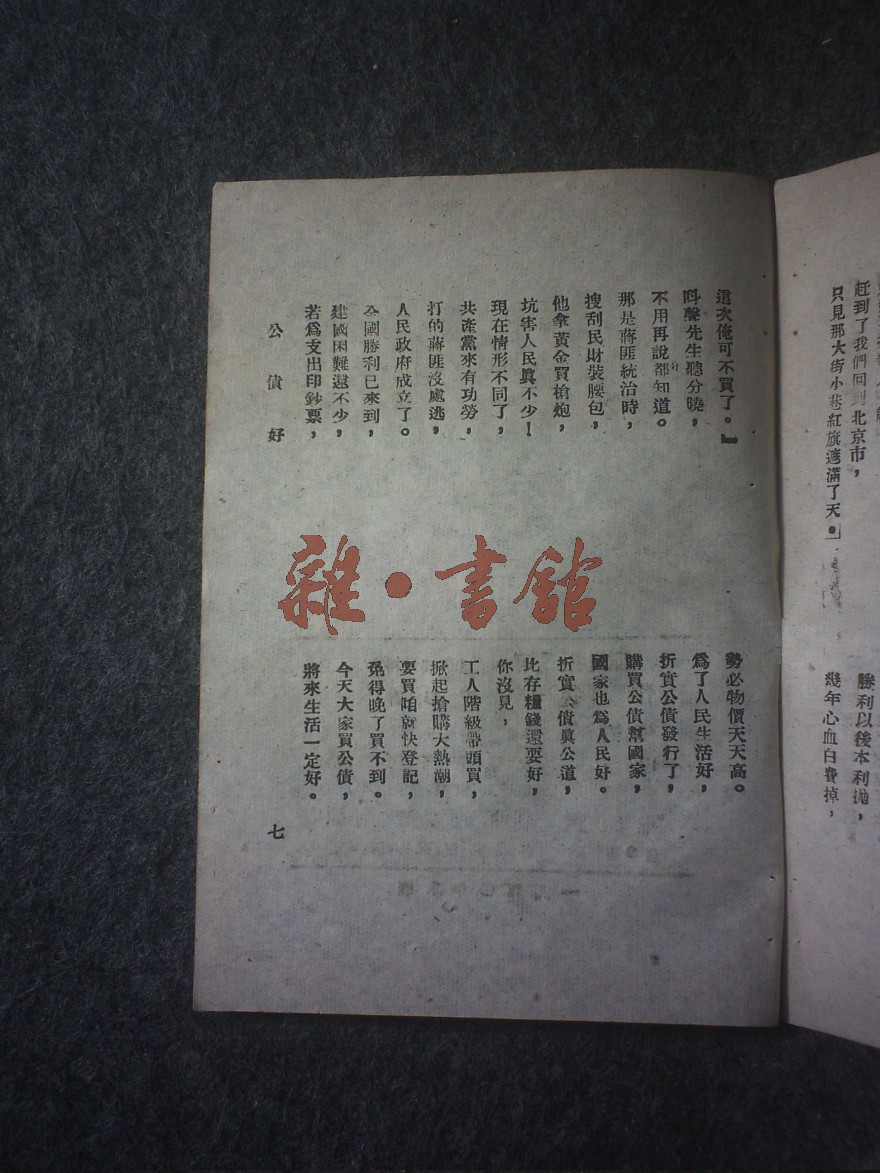 趕到了我們回到北京市，
只見那大街小巷紅旗遮滿了天。」
勝利以後本利拋，
幾年心血白費掉，
這次俺可不買了。』
叫聲先生聽分曉，
不用再說都知道。
那是蔣匪統治時，
搜刮民財裝腰包，
他拿黃金買槍炮，
坑害人民眞不少！
現在情形不同了，
共產黨來有功勞，
打的蔣匪沒處逃，
人民政府成立了。
全國勝利已來到，
建國困難還不少，
若爲支出印鈔票，
勢必物價天天高。
爲了人民生活好，
折實公債發行了，
購買公債幫國家，
國家也爲人民好。
折實公債眞公道，
比存糧錢還要好，
你沒見，
工人階級帶頭買，
掀起搶購大熱潮，
要買咱就快登記，
免得晚了買不到。
今天大家買公債，
將來生活一定好。
公債好
七
雜·書館